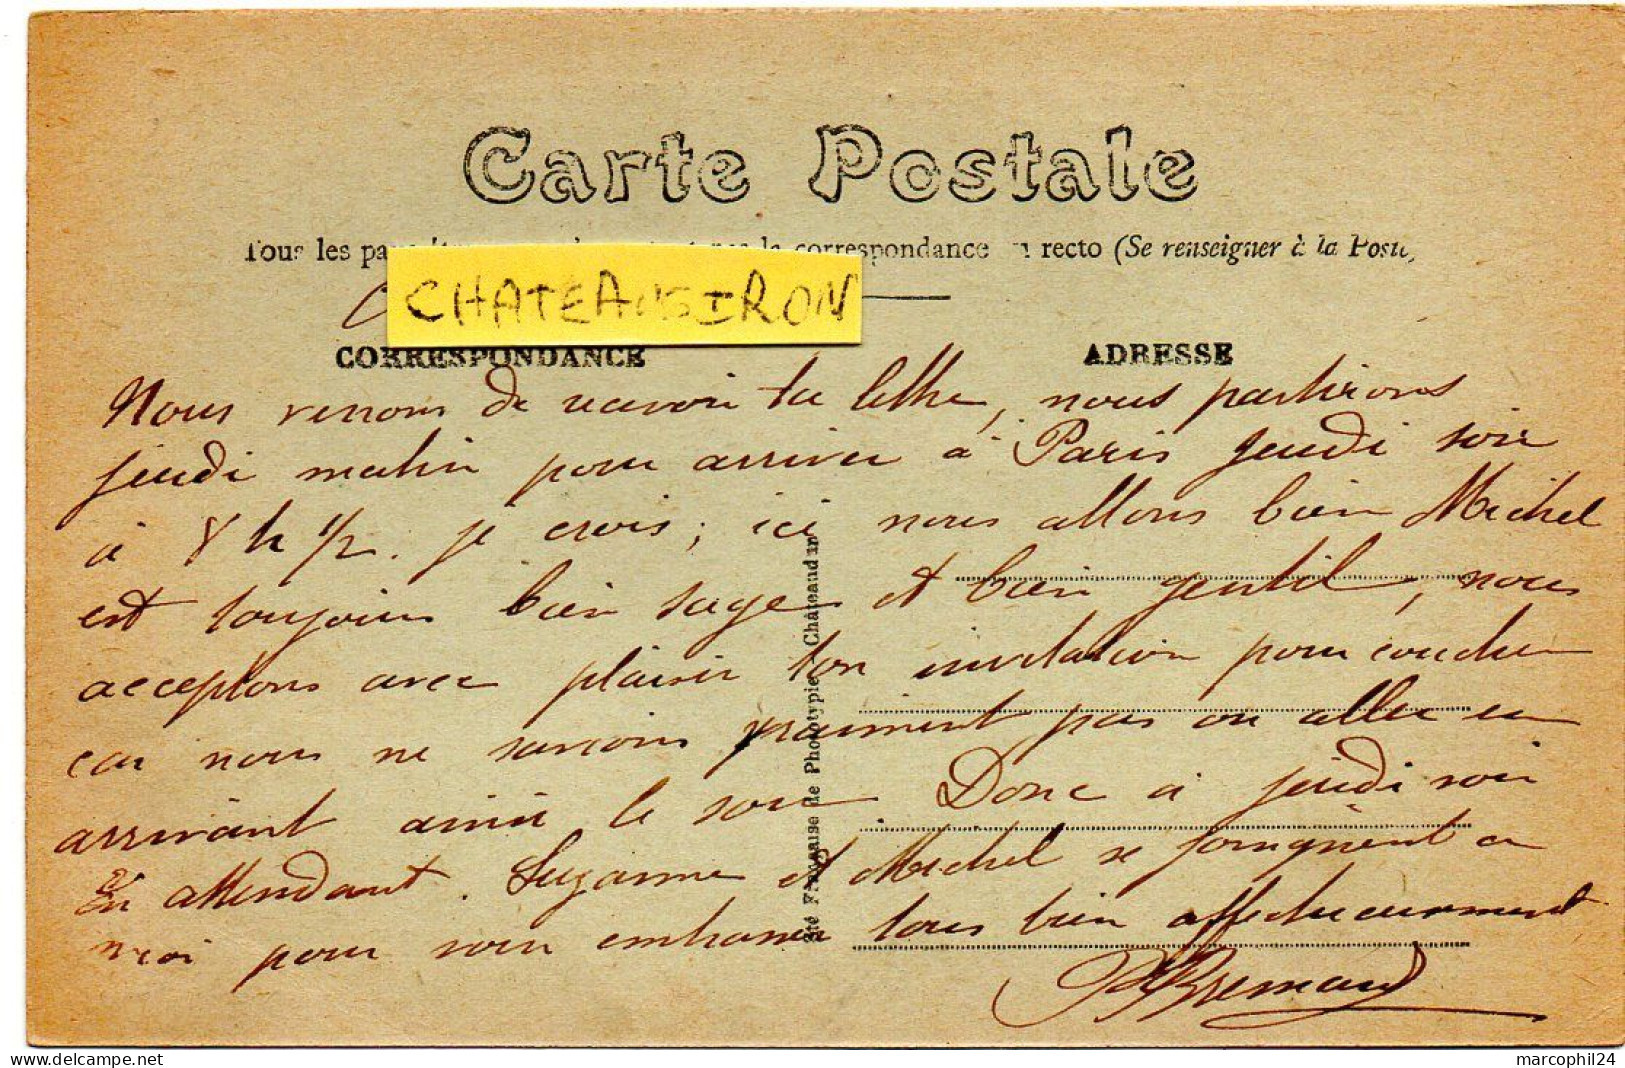 Carte Postale
Tous les pa correspondance recto (Se renseigner à la Poste)
CHATEAUGIRON
CORRESPONDANCE
ADRESSE
Nous venons de recevoir ta lettre, nous partirons
jeudi matin pour arriver à Paris jeudi soir
à 8 h 1/2. je crois; ici nous allons bien Michel
est toujours bien sage et bien gentil, nous
acceptons avec plaisir ton invitation pour coucher
car nous ne saurions vraiment pas ou aller en
arrivant ainsi le soir Donc a jeudi soir
En attendant. Suzanne et Michel se joingnent a
moi pour vous embrasser tous bien affectueusement
Bremand
Sté Française de Phototypie, Châteaudun
marcophil24